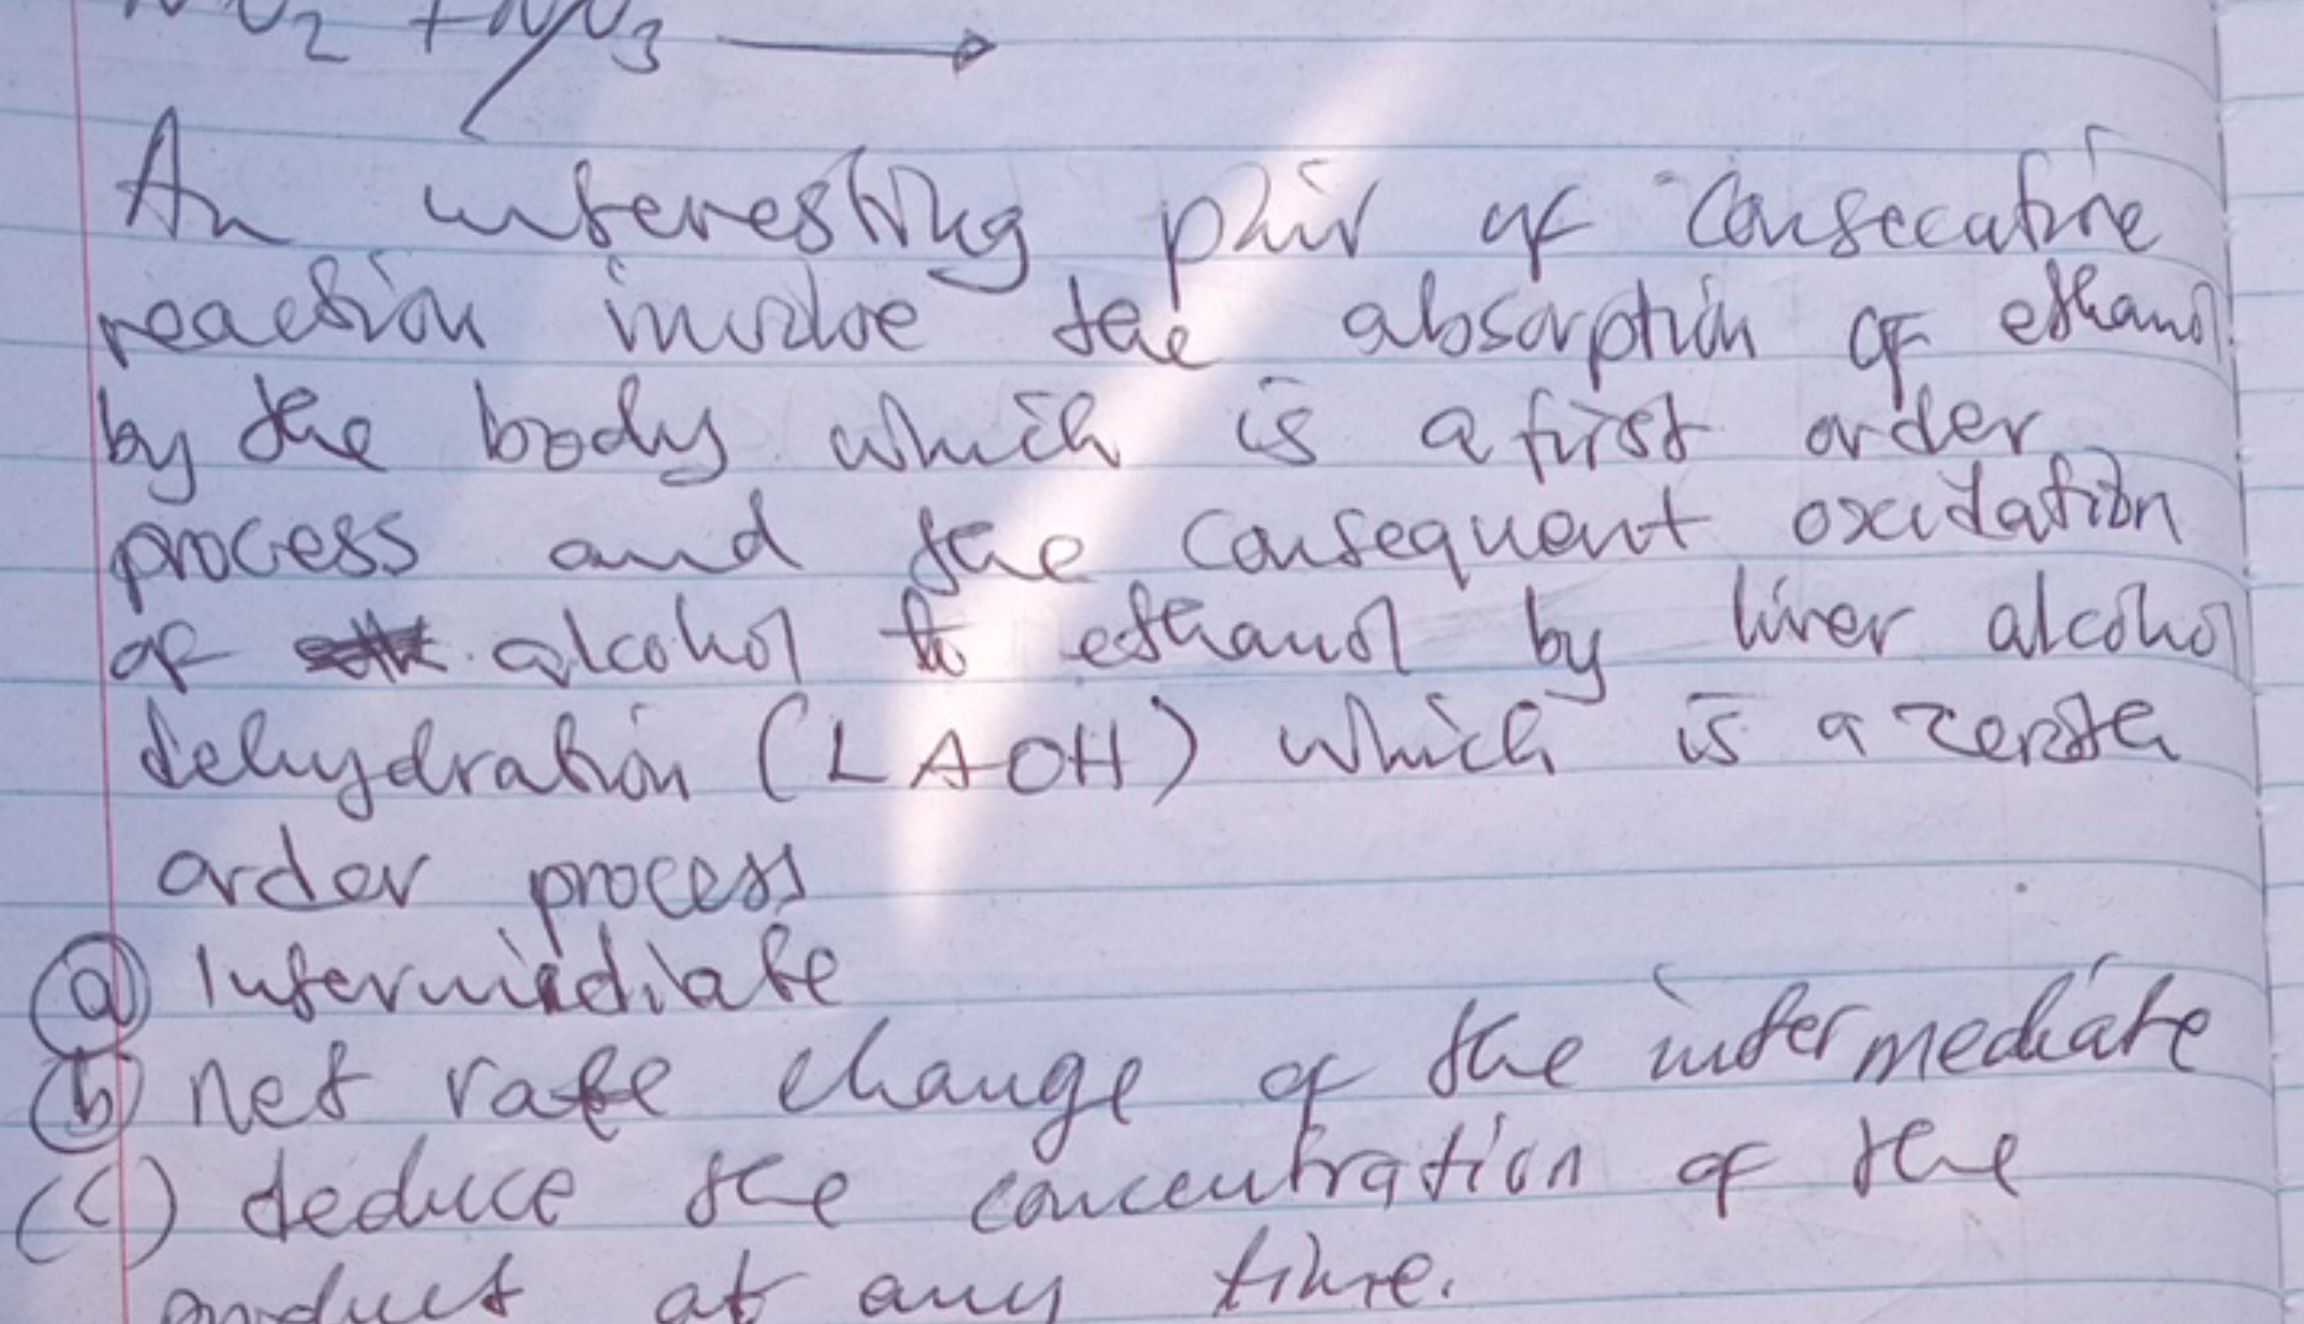 An interesting pair of consecutive
reaction involve the absorption of ethanol
by the body which is a first order
process and the consequent oxidation
of alcohol to ethanol by liver alcohol
dehydration (LAOH) which is a zeroth
order process
(a) Intermediate
(b) net rate change of the intermediate
(c) deduce the concentration of the
product at any time.